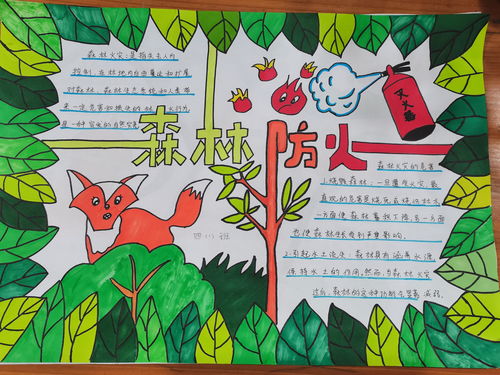 森林火灾：是指失去人为
控制，在林地内自由蔓延和扩展
对森林、森林生态系统和人类带
来一定危害和损失的林火行为
是一种突发的自然灾害
灭火器
森林防火
森林火灾的危害
1.烧毁森林：一旦遭受火灾，最
直观的危害是烧死或烧伤林木
一方面使森林蓄积下降，另一方面
也使森林生长受到严重影响。
四（1）班
2.引起水土流失：森林具有涵养水源
保持水土的作用，然而，当森林火灾
过后，森林的这种功能会显著减弱。